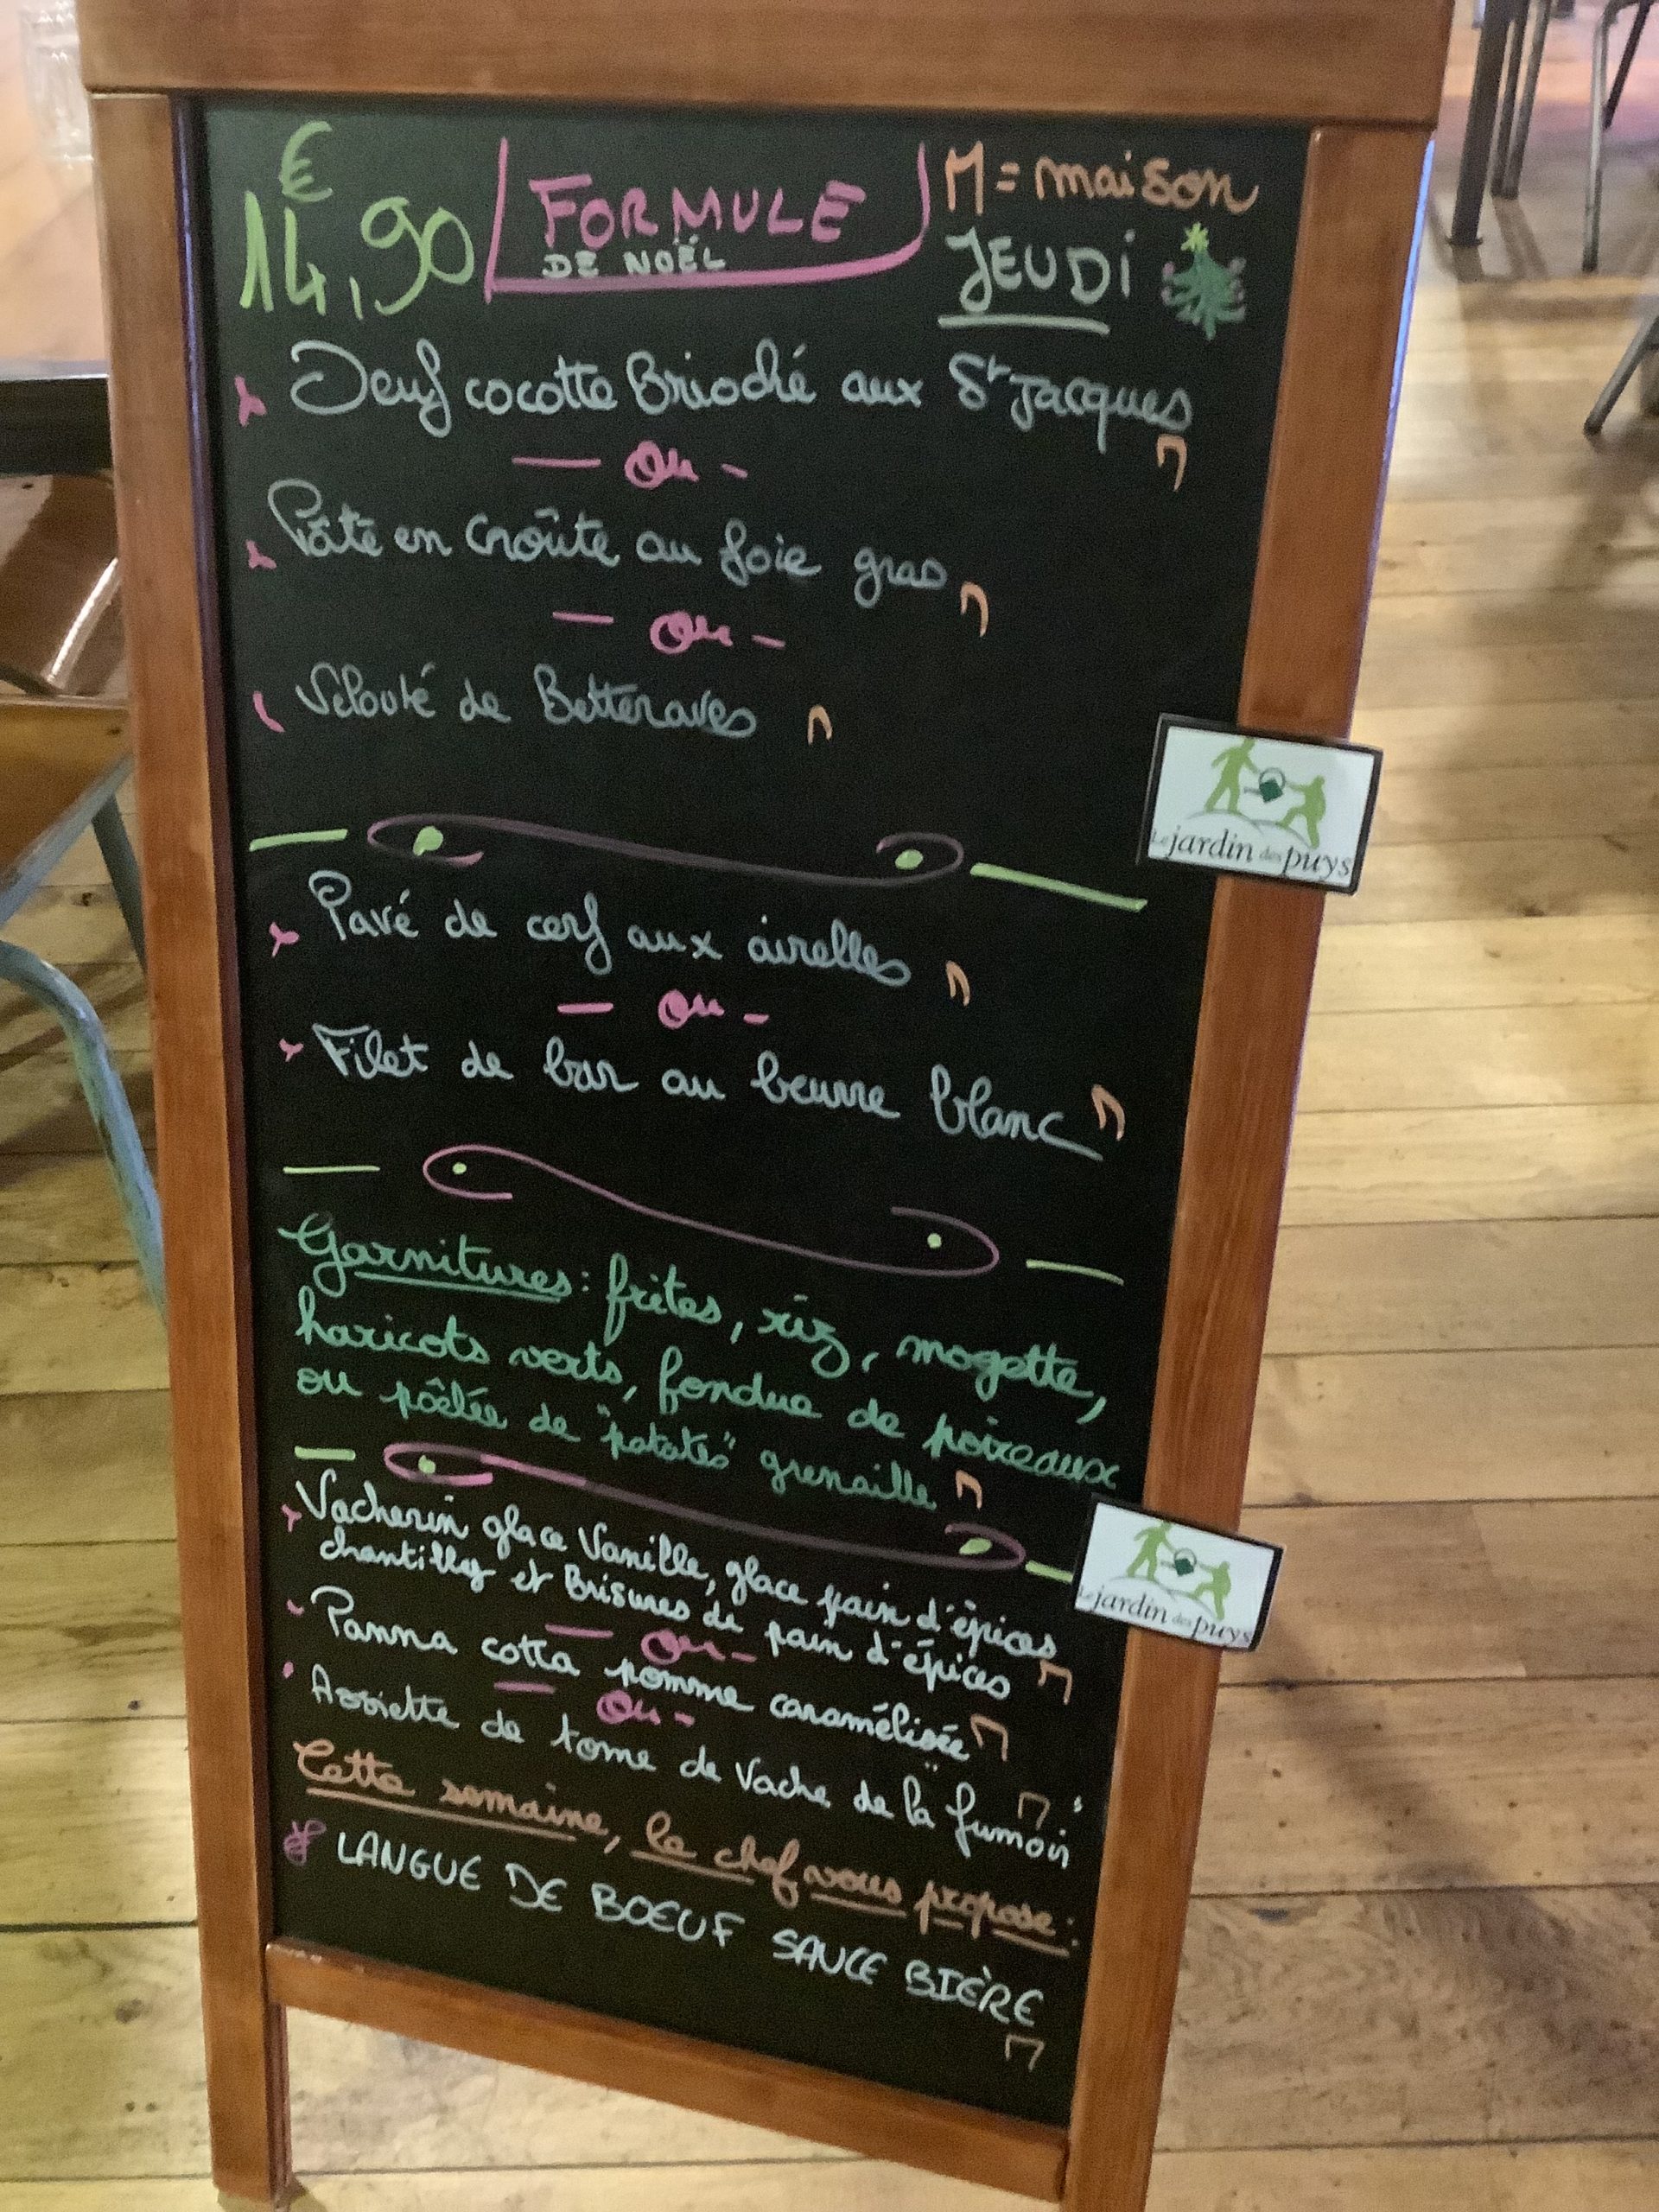 €
14,90
FORMULE
DE NOËL
M = maison
JEUDi
Oeuf cocotte Brioché aux St Jacques
M
- Ou -
Pâté en croûte au foie gras M
- Ou -
Velouté de Betteraves M
Le jardin des puys
Pavé de cerf aux airelles M
- Ou -
Filet de bar au beurre blanc M
Garnitures : frites, riz, mogette,
haricots verts, fondue de poireaux
ou pôêlée de "patate" grenaille M
Vacherin glace Vanille, glace pain d'épices
chantilly et Brisures de pain d'épices M
- Ou -
Panna cotta pomme caramélisée M
- Ou -
Assiette de tome de Vache de "la fumoir" M
Le jardin des puys
Cette semaine, le chef vous propose :
LANGUE DE BOEUF SAUCE BIÈRE
M